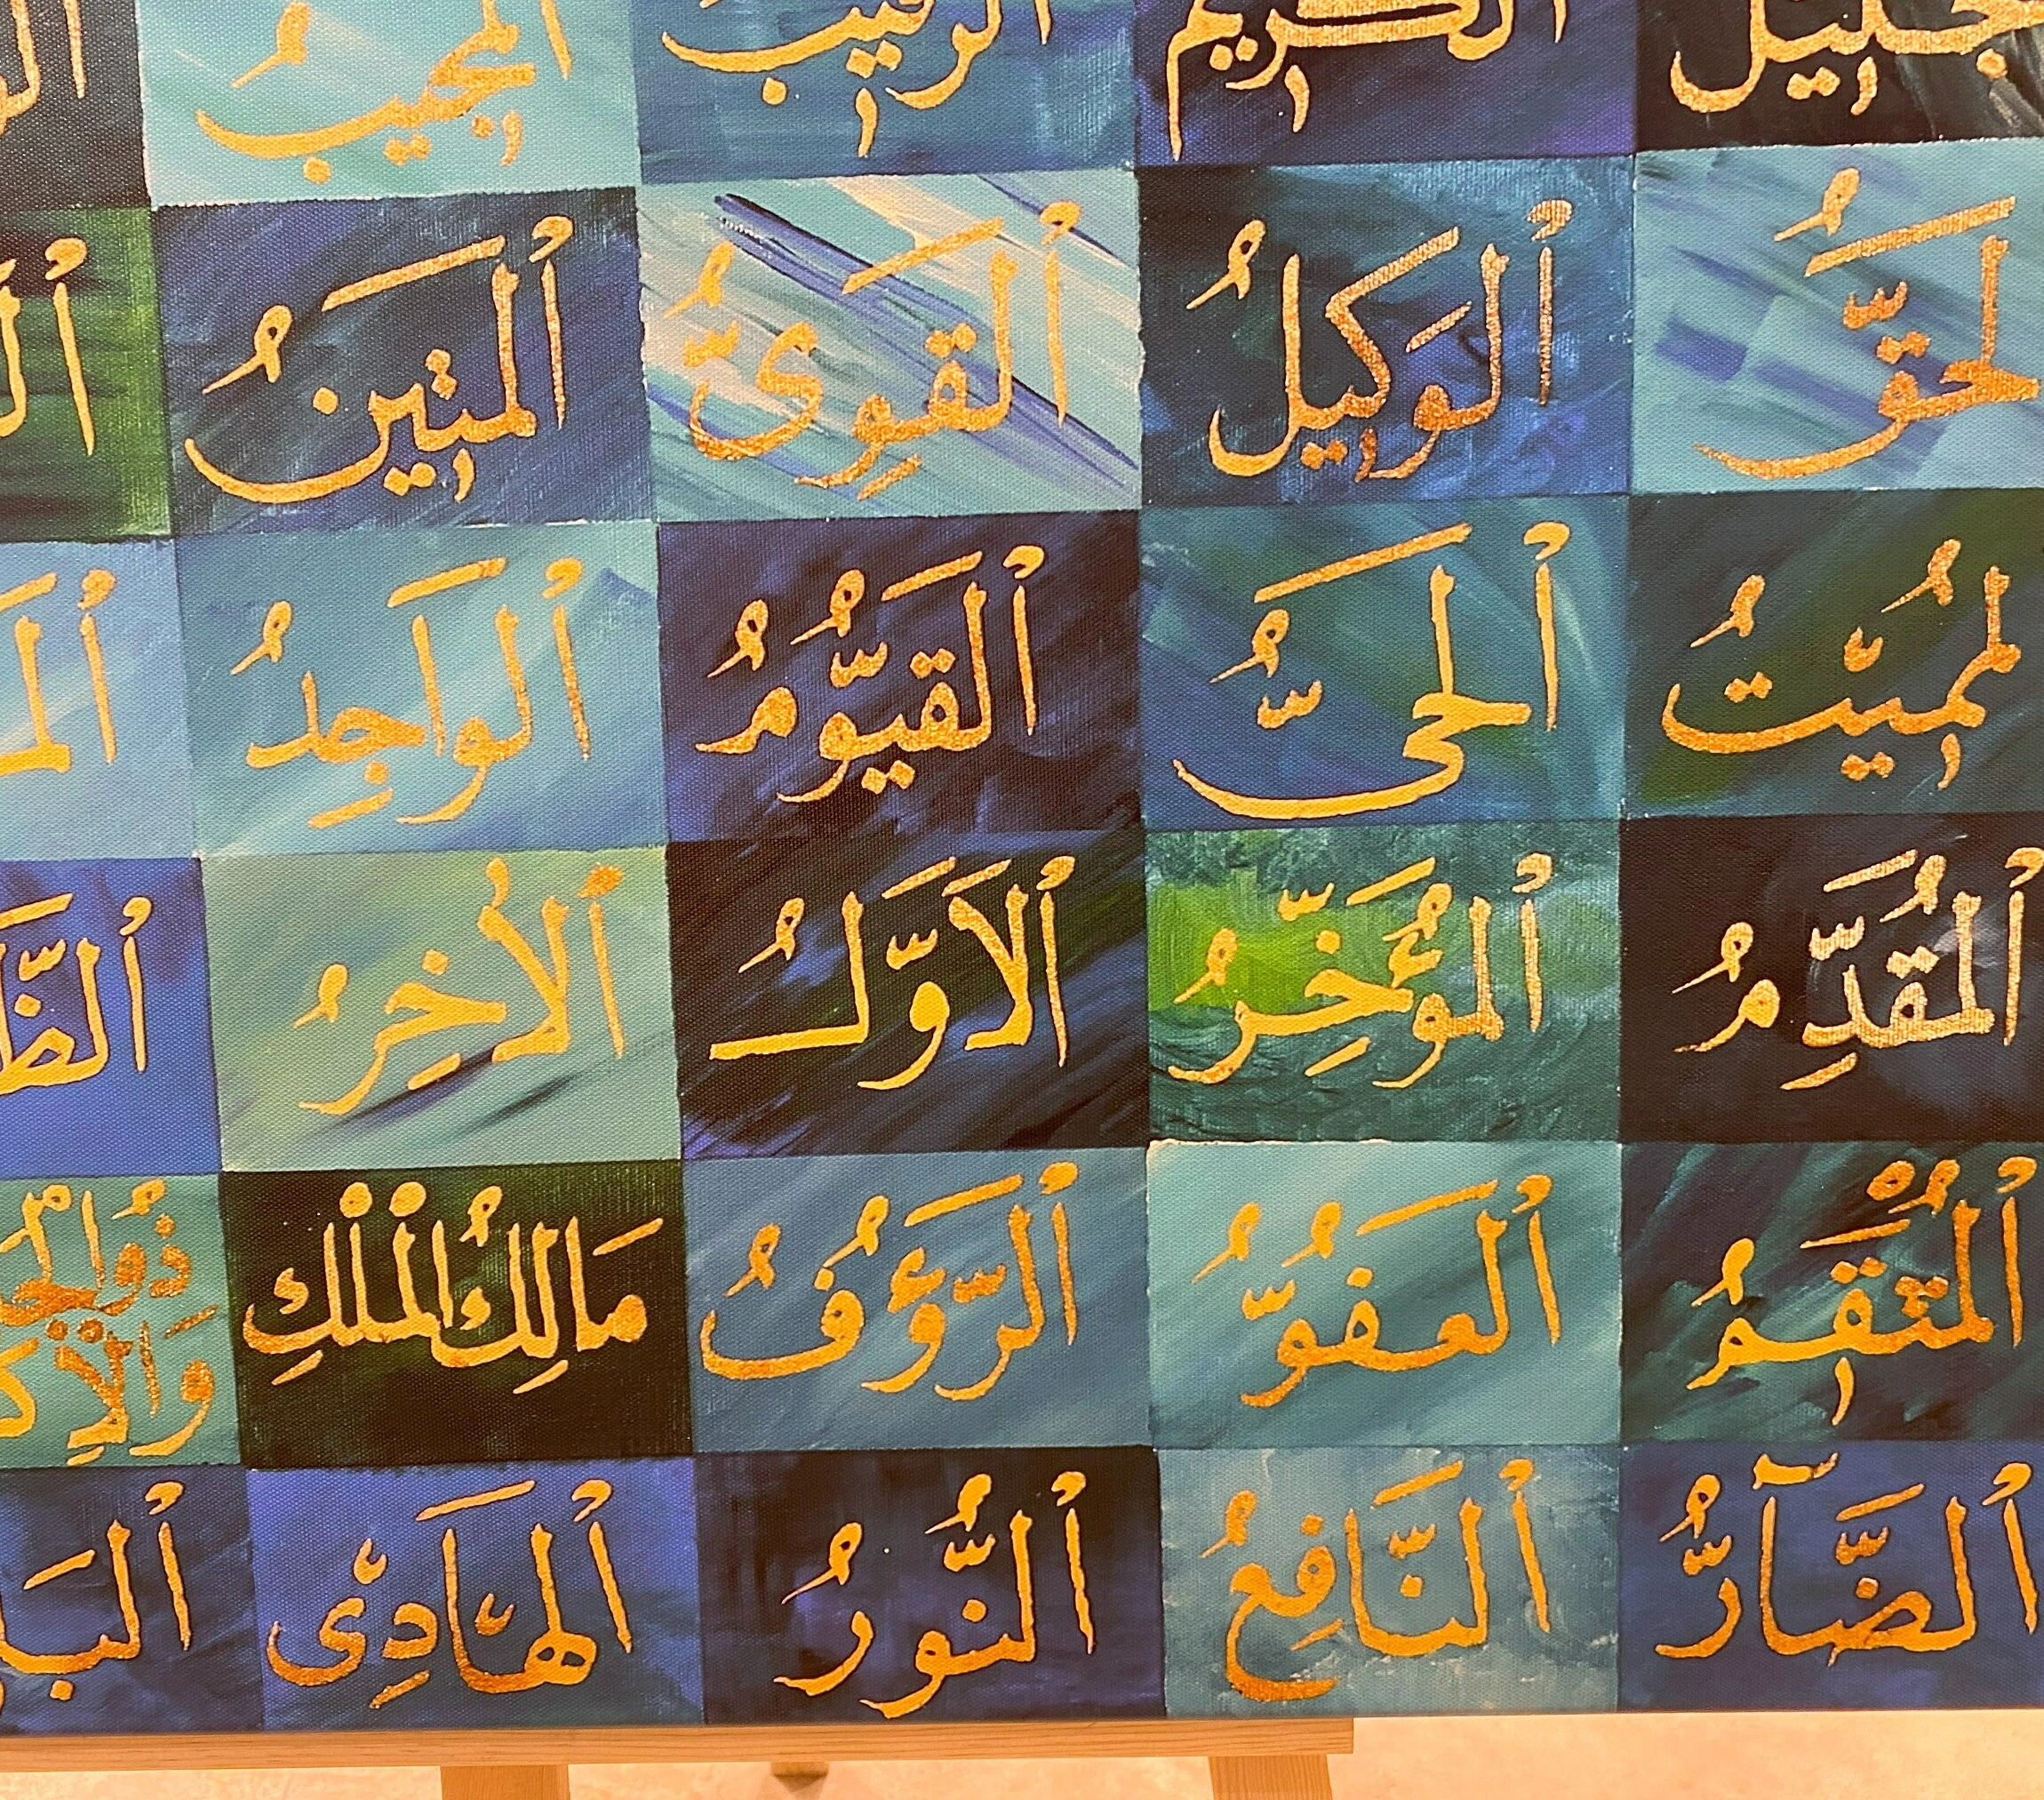 ٱلْكَرِيمُ ٱلرَّقِيبُ ٱلْمُجِيبُ
لحَقُّ ٱلوَكِيلُ ٱلقَوِىُّ ٱلمَتِينُ
لمُمِيتُ ٱلحَىُّ ٱلقَيُّومُ ٱلوَاجِدُ
ٱلمُقَدِّمُ ٱلمُؤَخِّرُ ٱلاَوَّلُ ٱلاٰخِرُ
ٱلمُنْتَقِمُ ٱلعَفُوُّ ٱلرَّؤُفُ مَالِكُ المْلْكِ ذُوالجَ
وَالاِكـ
ٱلضَّآرُّ ٱلنَّافِعُ ٱلنُّورُ ٱلهَادِى